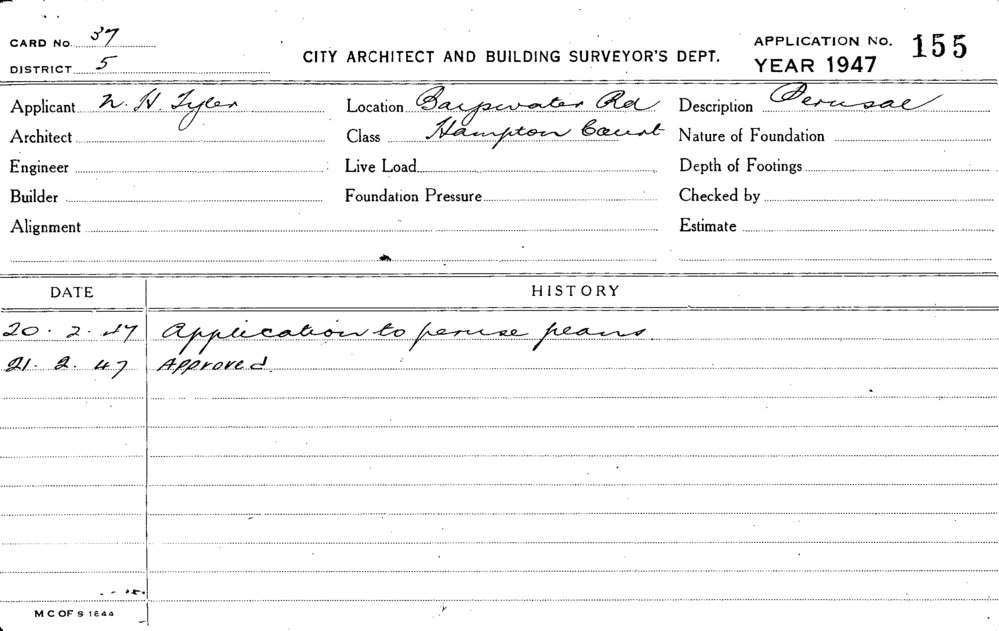 CARD No. 37
DISTRICT 5
CITY ARCHITECT AND BUILDING SURVEYOR'S DEPT.
APPLICATION No. 155
YEAR 1947
Applicant N. H. Tyler
Location Bayswater Rd
Description Perusal
Architect
Class Hampton Court
Nature of Foundation
Engineer
Live Load
Depth of Footings
Builder
Foundation Pressure
Checked by
Alignment
Estimate
DATE HISTORY
20. 2. 47 Application to peruse plans.
21. 2. 47 Approved.
M C OF S 1844